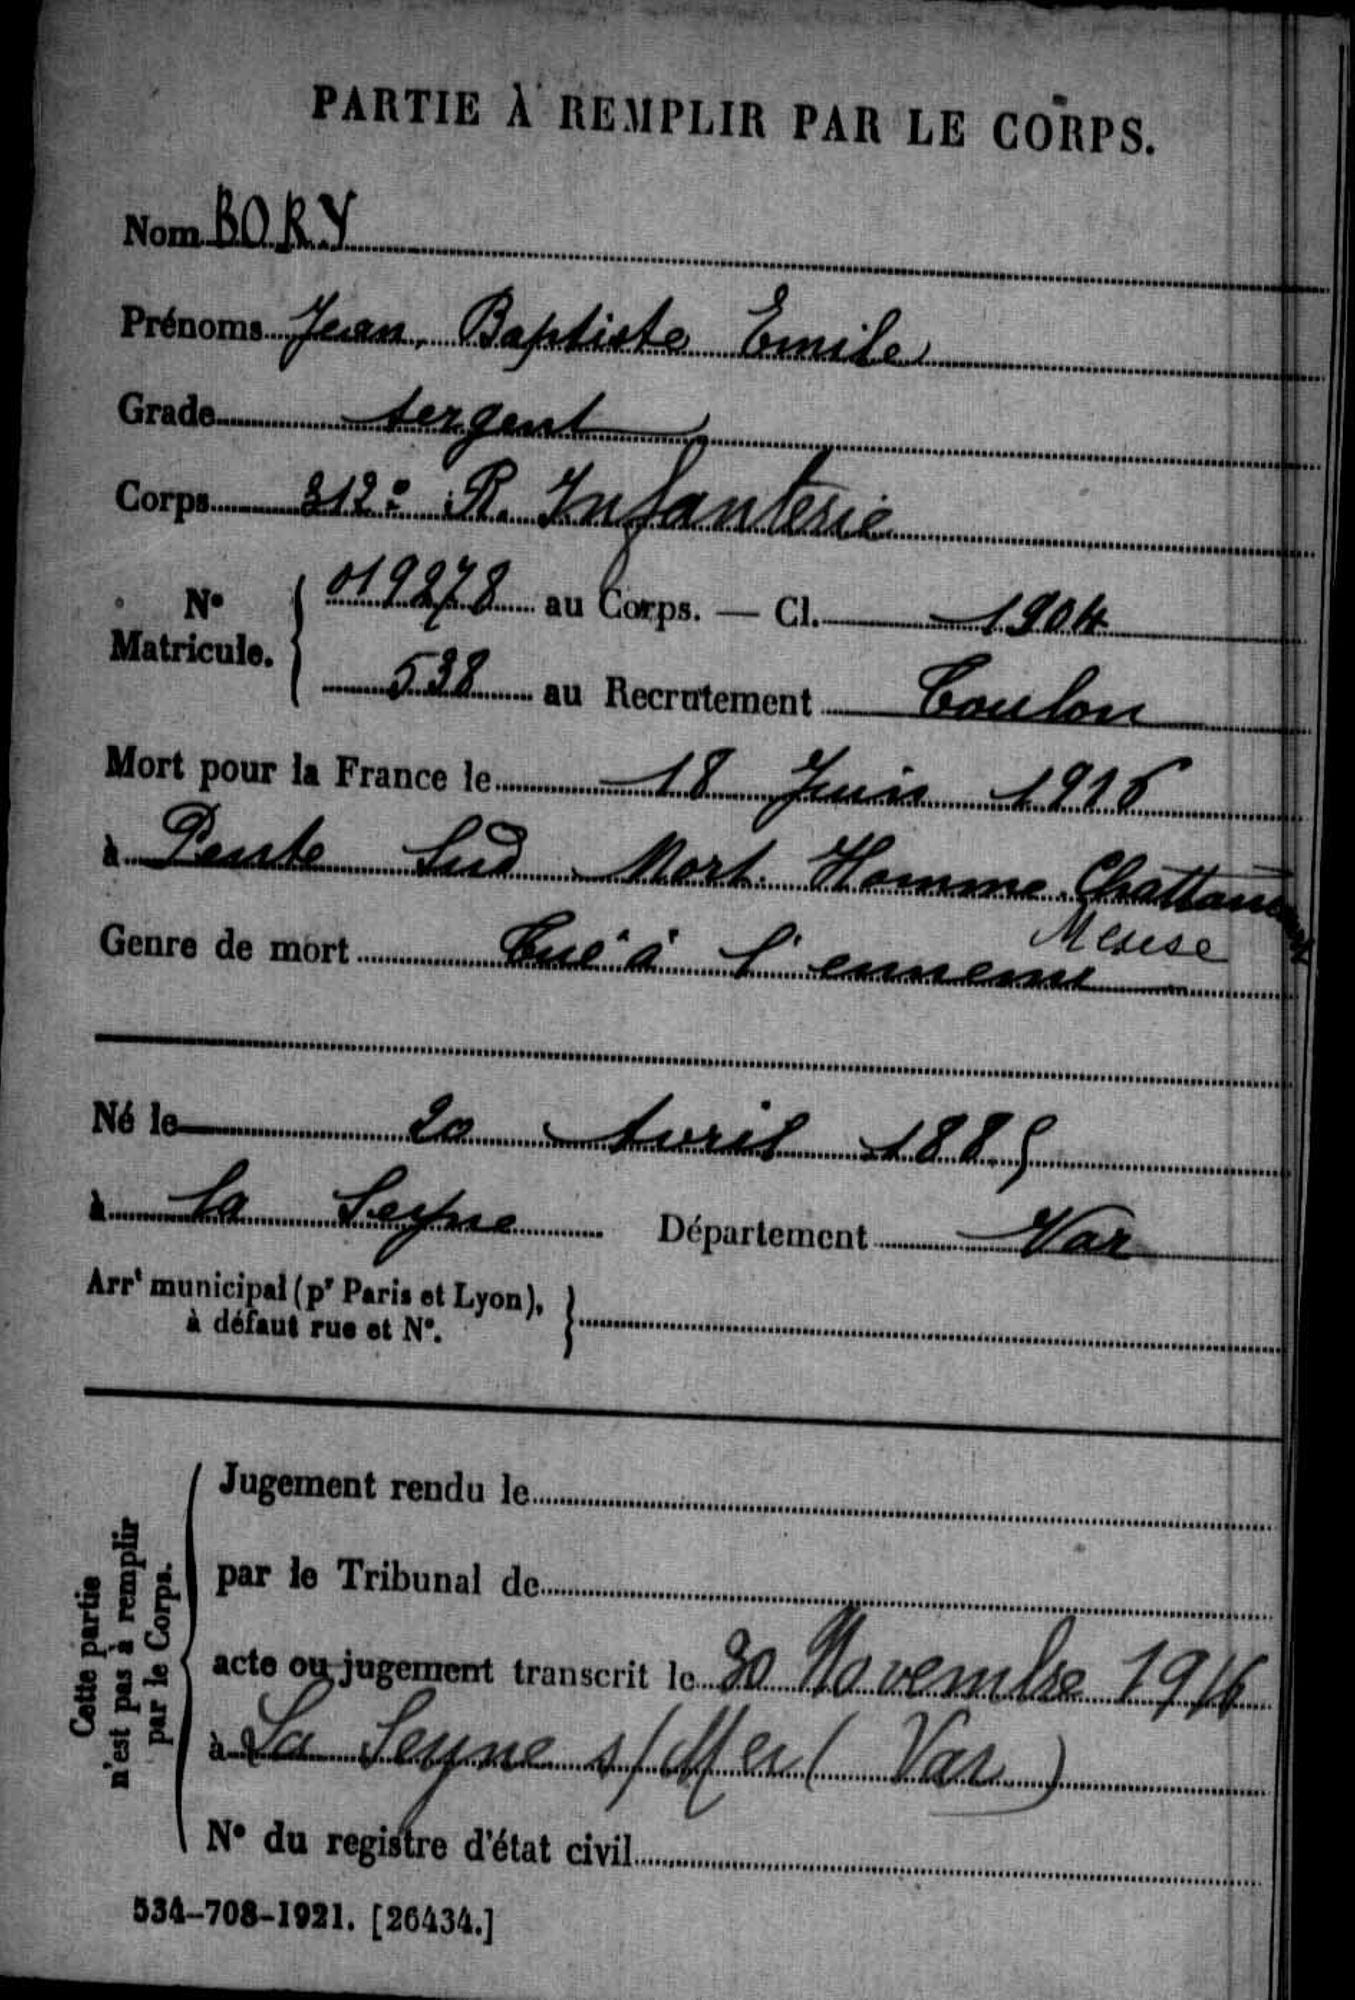 PARTIE À REMPLIR PAR LE CORPS.
Nom BORY
Prénoms Jean, Baptiste Emile
Grade sergent
Corps 312e R. Infanterie
No Matricule. { 019278 au Corps. — Cl. 1904
538 au Recrutement Toulon
Mort pour la France le 18 Juin 1916
à Pente Sud Mort Homme Chattancourt
Meuse
Genre de mort Tué à l'ennemi
Né le 20 Avril 1885
à La Seyne Département Var
Arrt municipal (pr Paris et Lyon),
à défaut rue et No. }
Cette partie
n'est pas à remplir
par le Corps.
Jugement rendu le
par le Tribunal de
acte ou jugement transcrit le 30 Novembre 1916
à La Seyne s/Mer (Var)
No du registre d'état civil
534-708-1921. [26434.]